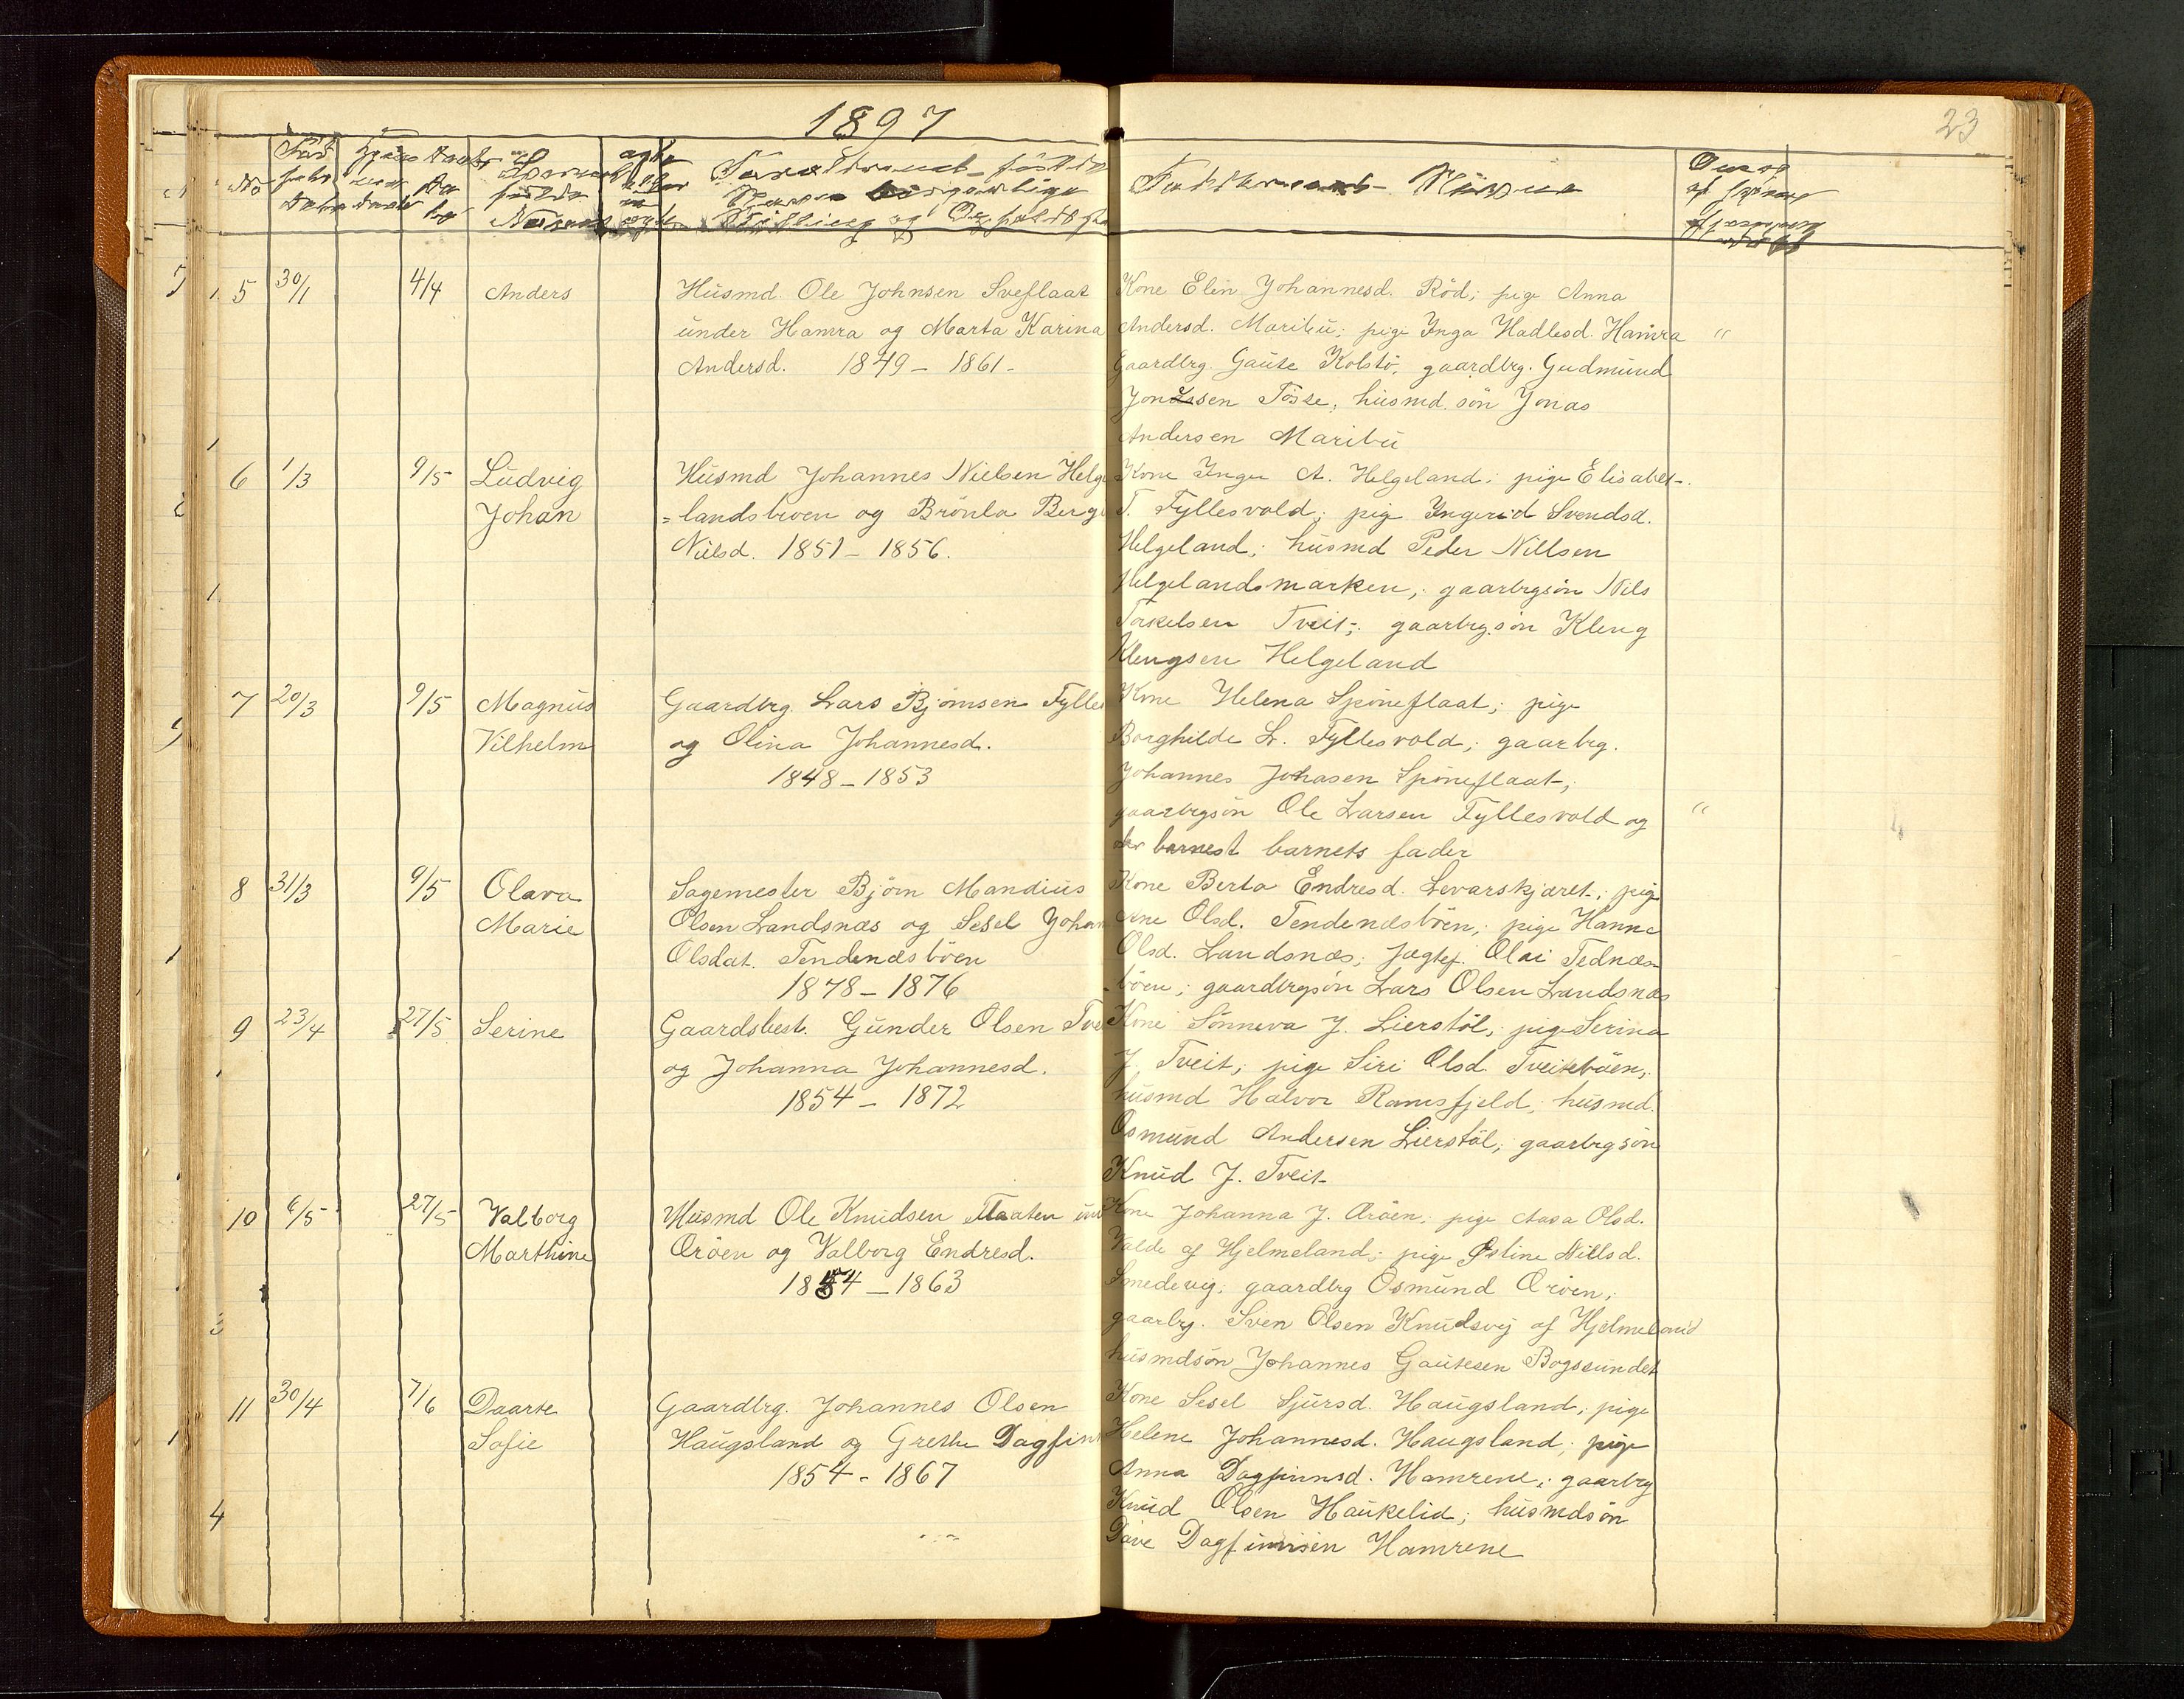 1897
23
No
Forældrenes
Faddernes Navne
5 30/1 4/4 Anders Husmd. Ole Johnsen Sveflaat
under Hamra og Marta Karina
Andersd. 1849 - 1861 -
Kone Elin Johannesd. Röd; pige Anna
Andersd. Maribu; pige Inga Hadlesd. Hamra "
Gaardbrg. Gaute Kolstö, gaardbrg. Gudmund
Jonassen Tösse; husmd. sön Jonas
Andersen Maribu
6 1/3 9/5 Ludvig Husmd Johannes Nielsen Helge
Johan =landsbroen og Brönla Berg
Nielsd. 1851 - 1856.
Kone Inger A. Helgeland; pige Elisabet
T. Fyllesvold; pige Ingerid Svendsd.
Helgeland; husmd Peder Nillsen
Helgelandsmarken; gaarbrgsön Nils
Torkelsen Tveit; gaarbrg.sön Kleng
Klengsen Helgeland
7 20/3 9/5 Magnus Gaardbrg. Lars Bjornsen Fylles
Vilhelm og Olina Johannesd.
1848 - 1853
Kone Helena Spöneflaat; pige
Borghilde L. Fyllesvold; gaarbrg.
Johannes Johasen Spöneflaat;
gaarbrgsön Ole Larsen Fyllesvold og "
barnest barnets fader
8 31/3 9/5 Olava Sagemester Björn Mandius
Marie Olsen Landsnæs og Sesel Johan
Olsdat. Tendenæsböen
1878 - 1876
Kone Berta Endresd. Levarskjæret; pige
Ane Olsd. Tendenæsböen; pige Hanna
Olsd. Landsnæs; Jægtef. Olai Tednæs-
-böen; gaardbrgsön Lars Olsen Landsnæs
9 23/4 27/5 Serine Gaardsbest. Gunder Olsen Tve
og Johanna Johannesd.
1854 - 1872
Kone Sönneva J. Lierstöl; pige Serina
J. Tveit; pige Siri Olsd. Tveiteböen;
husmd Halvor Ramsfjeld; husmd.
Osmund Andersen Lierstöl; gaarbrgsön
Knud J. Tveit
10 6/5 27/5 Valborg Husmd Ole Knudsen Flaaten un
Marthine Æröen og Valborg Endresd.
1854 - 1863
Kone Johanna J. Æröen; pige Aasa Olsd.
Valde af Hjelmeland; pige Østine Nillsd.
Smedevig; gaardbrg Osmund Æröen;
gaarbrg. Sven Olsen Knudsvig af Hjelmeland
husmdsön Johannes Gautesen Bogssundet
11 30/4 7/6 Daarte Gaardbrg. Johannes Olsen
Sofie Haugsland og Grethe Dagfin
1854 - 1867
Kone Sesel Sjursd. Haugsland; pige
Helene Johannesd. Haugsland; pige
Anna Dagfinnsd. Hamrene; gaarbrg
Knud Olsen Haukelid; husmdsön
Dave Dagfinnsen Hamrene